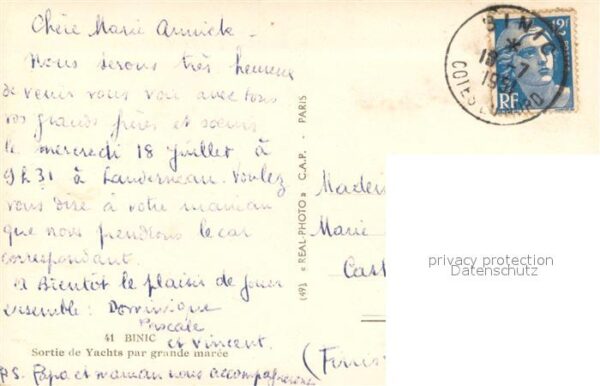 Chère Marie Annick -
Nous serons très heureux
de venir vous voir avec tous
vos grands frères et soeurs
le mercredi 18 juillet à
9h31 à Landerneau. Voulez
vous dire à votre maman
que nous prendrons le car
correspondant.
A Bientôt le plaisir de jouer
ensemble: Dominique
Pascale
et Vincent.
41 BINIC
Sortie de Yachts par grande marée
P.S. Papa et maman nous accompagnerons
(49) « REAL-PHOTO » C.A.P. - PARIS
BINIC
COTES DU NORD
12f
POSTES
RF
Madem
Marie
Cast
(Finis
privacy protection
Datenschutz